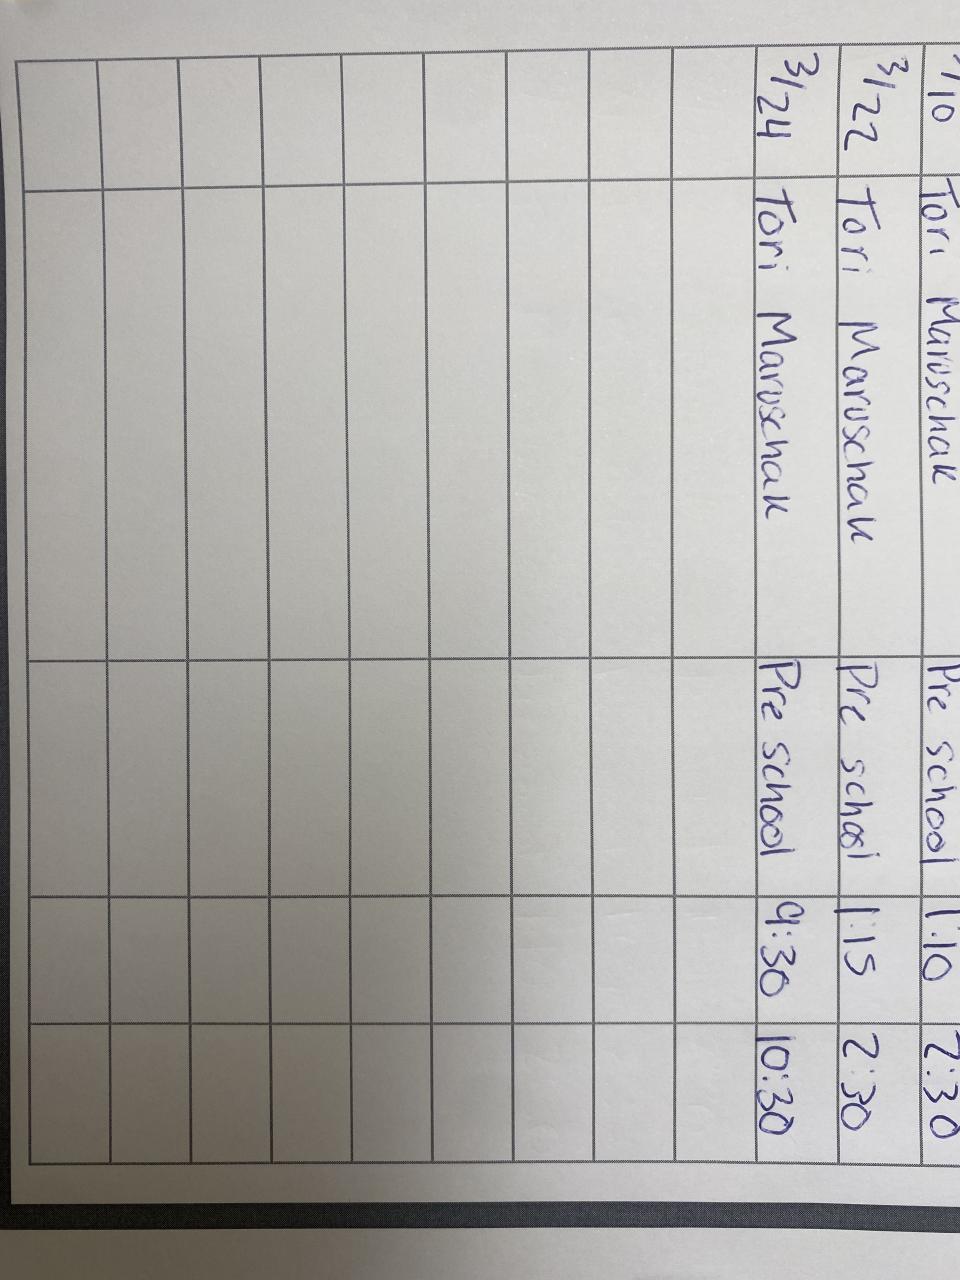 /10 Tori Maruschak Pre school 1:10 2:30
3/22 Tori Maruschak Pre school 1:15 2:30
3/24 Tori Maruschak Pre school 9:30 10:30